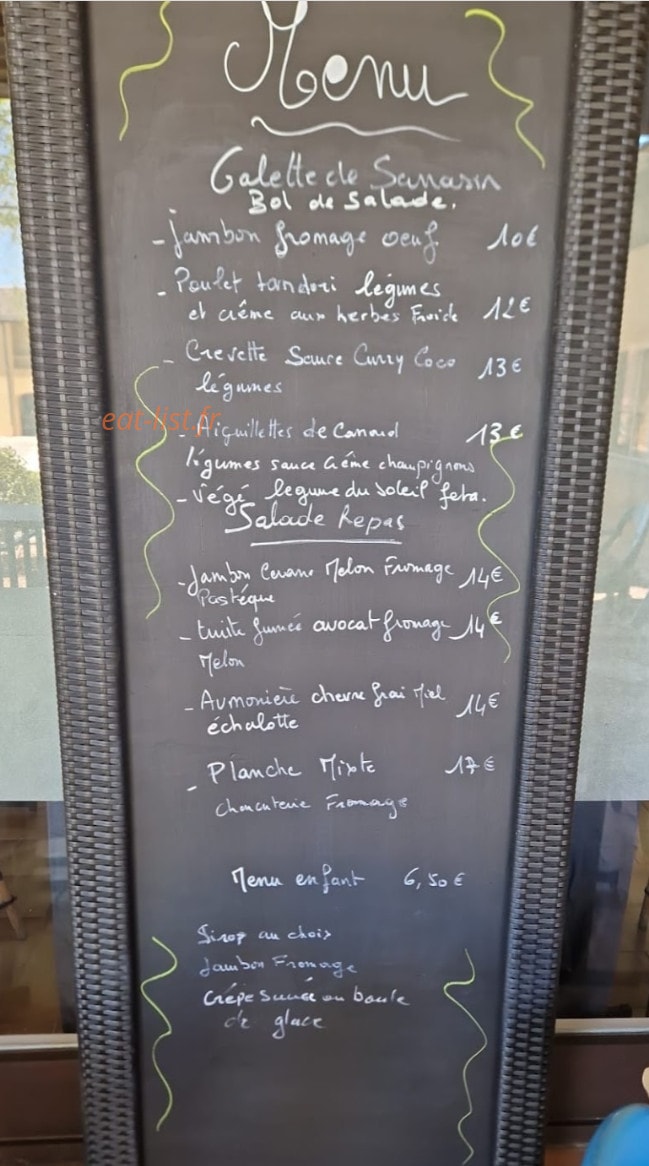 Menu
Galette de Sarrasin
Bol de Salade.
- Jambon fromage oeuf. 10€
- Poulet tandori légumes
et crème aux herbes Froide 12€
- Crevette Sauce Curry Coco 13€
légumes
eat-list.fr
- Aiguillettes de Canard 13€
légumes sauce crème champignons
- Végé legume du soleil feta.
Salade Repas
- Jambon Melon Fromage 14€
Pastèque
- truite fumée avocat fromage 14€
Melon
- Aumonière chevre frai Miel 14€
échalotte
- Planche Mixte 17€
Charcuterie Fromage
Menu enfant 6,50€
Sirop au choix
Jambon Fromage
Crêpe Sucrée ou boule
de glace